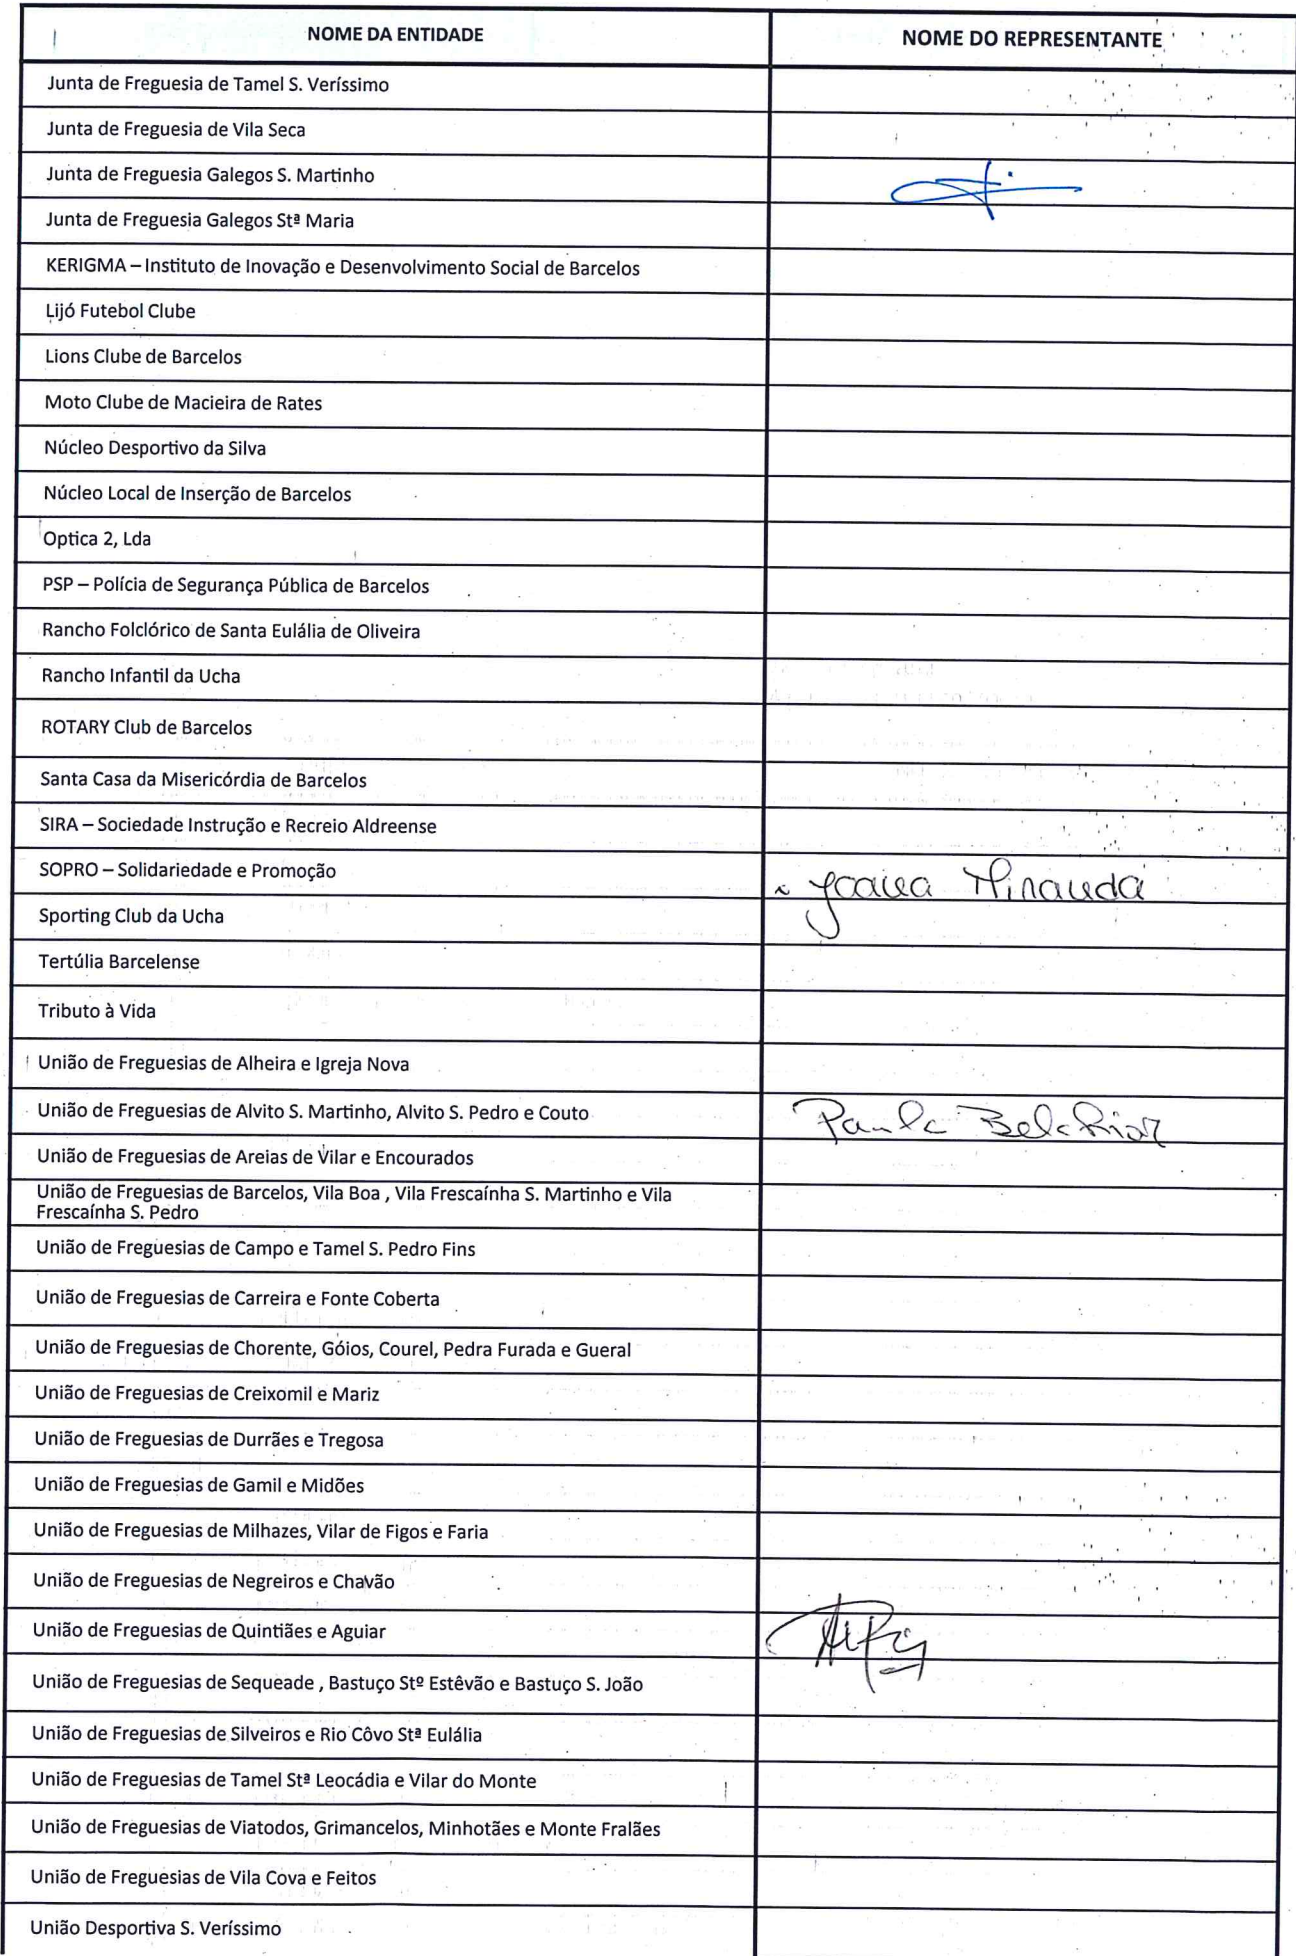 NOME DA ENTIDADE NOME DO REPRESENTANTE
Junta de Freguesia de Tamel S. Veríssimo
Junta de Freguesia de Vila Seca
Junta de Freguesia Galegos S. Martinho
Junta de Freguesia Galegos Stª Maria
KERIGMA – Instituto de Inovação e Desenvolvimento Social de Barcelos
Lijó Futebol Clube
Lions Clube de Barcelos
Moto Clube de Macieira de Rates
Núcleo Desportivo da Silva
Núcleo Local de Inserção de Barcelos
Optica 2, Lda
PSP – Polícia de Segurança Pública de Barcelos
Rancho Folclórico de Santa Eulália de Oliveira
Rancho Infantil da Ucha
ROTARY Club de Barcelos
Santa Casa da Misericórdia de Barcelos
SIRA – Sociedade Instrução e Recreio Aldreense
SOPRO – Solidariedade e Promoção Joana Miranda
Sporting Club da Ucha
Tertúlia Barcelense
Tributo à Vida
União de Freguesias de Alheira e Igreja Nova
União de Freguesias de Alvito S. Martinho, Alvito S. Pedro e Couto Paula Belchior
União de Freguesias de Areias de Vilar e Encourados
União de Freguesias de Barcelos, Vila Boa , Vila Frescaínha S. Martinho e Vila
Frescaínha S. Pedro
União de Freguesias de Campo e Tamel S. Pedro Fins
União de Freguesias de Carreira e Fonte Coberta
União de Freguesias de Chorente, Góios, Courel, Pedra Furada e Gueral
União de Freguesias de Creixomil e Mariz
União de Freguesias de Durrães e Tregosa
União de Freguesias de Gamil e Midões
União de Freguesias de Milhazes, Vilar de Figos e Faria
União de Freguesias de Negreiros e Chavão
União de Freguesias de Quintiães e Aguiar
União de Freguesias de Sequeade , Bastuço Stº Estêvão e Bastuço S. João
União de Freguesias de Silveiros e Rio Côvo Stª Eulália
União de Freguesias de Tamel Stª Leocádia e Vilar do Monte
União de Freguesias de Viatodos, Grimancelos, Minhotães e Monte Fralães
União de Freguesias de Vila Cova e Feitos
União Desportiva S. Veríssimo